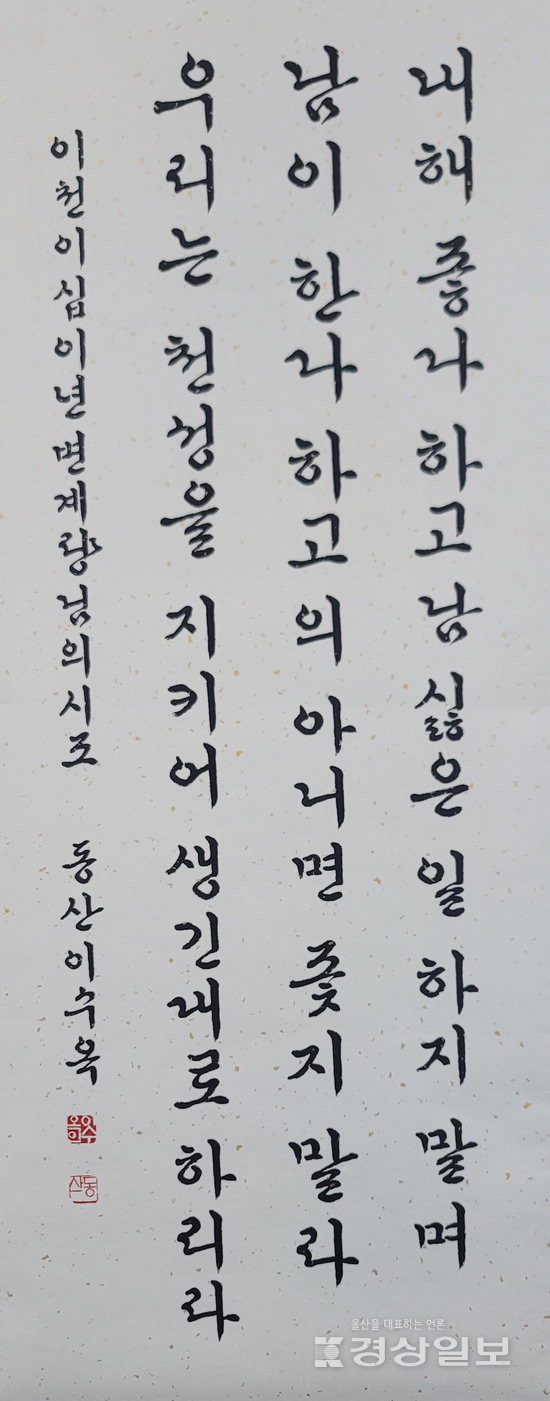 내해 좋다 하고 남 싫은 일 하지 말며
남이 한다 하고 의 아니면 좇지 말라
우리는 천성을 지키어 생긴대로 하리라
이천이십이년 변계량님의 시조 동산 이수옥
동산
울산을 대표하는 언론
경상일보